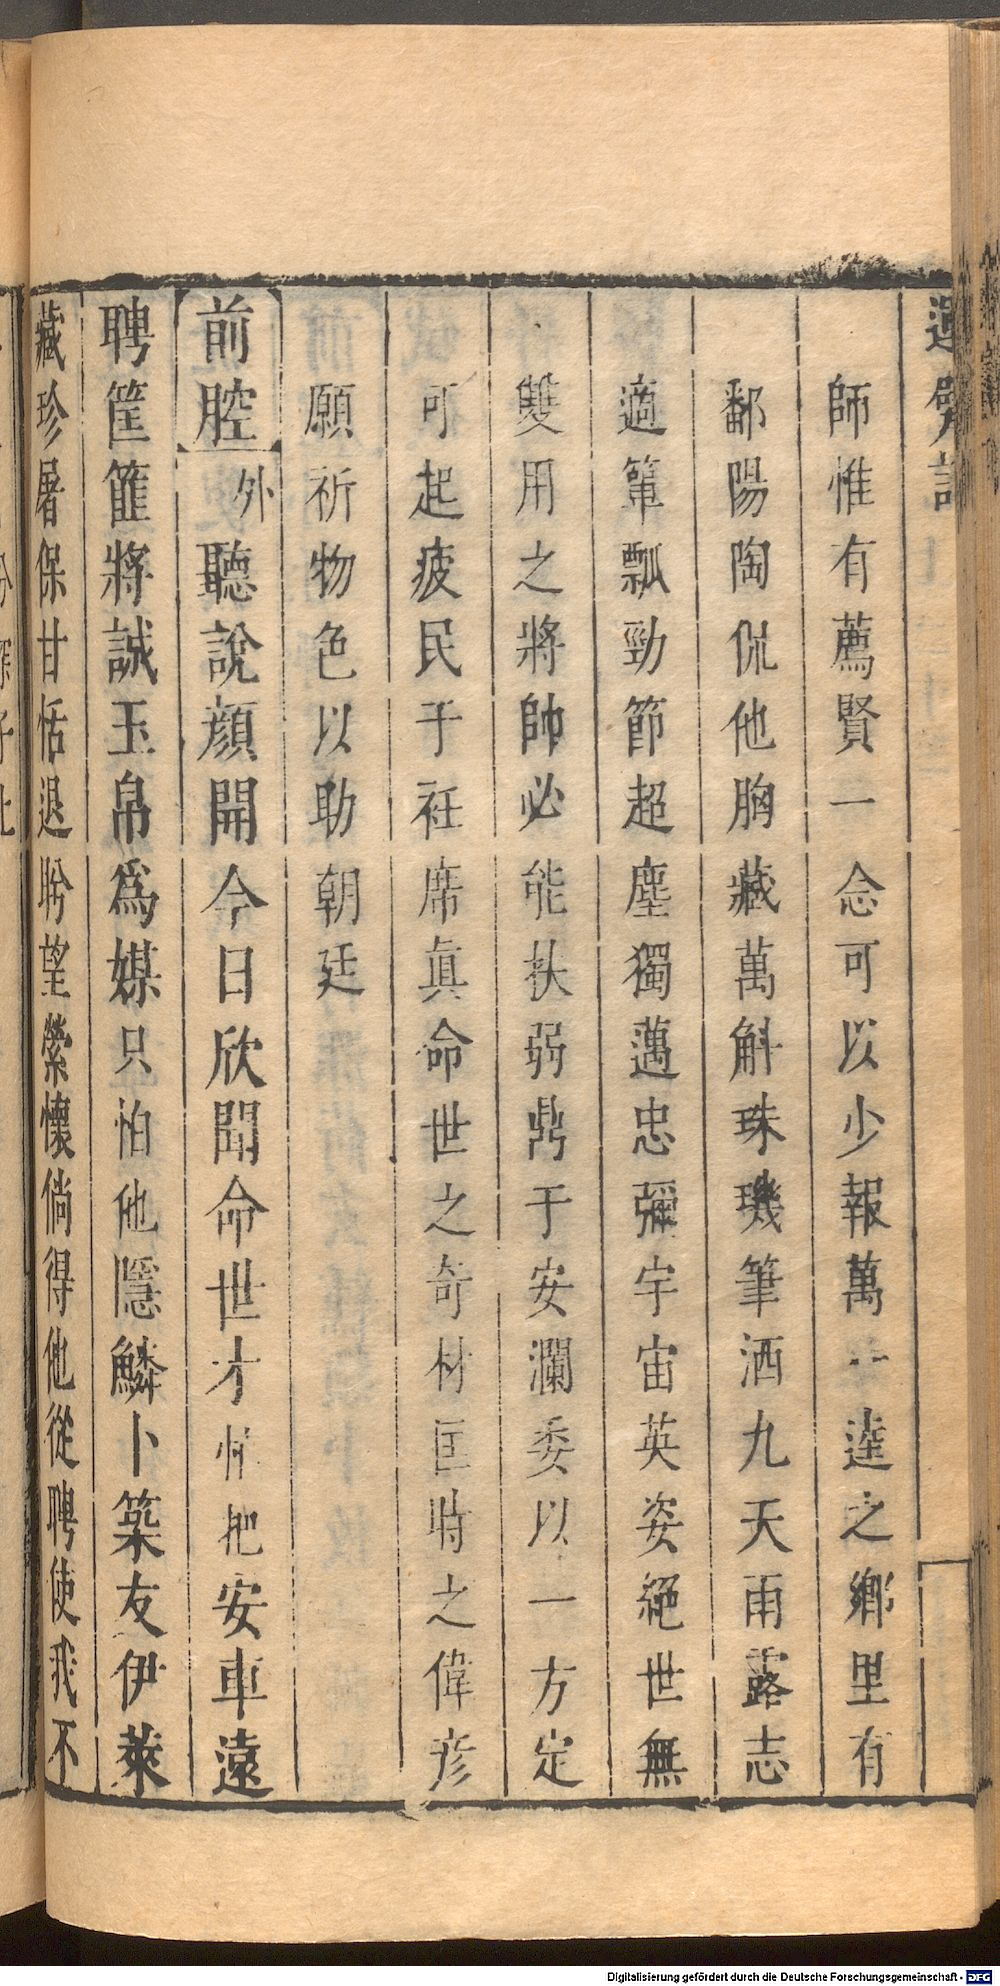 運甓記
師惟有薦賢一念可以少報萬一逵之鄉里有
鄱陽陶侃他胸藏萬斛珠璣筆洒九天雨露志
適簞瓢勁節超塵獨邁忠彌宇宙英姿絕世無
雙用之將帥必能扶弱鼎于安瀾委以一方定
可起疲民于衽席真命世之奇材匡時之偉彥
願祈物色以助朝廷
前腔 外 聽說顏開今日欣聞命世才忙把安車遠
聘筐篚將誠玉帛為媒只怕他隱鱗卜築友伊萊
藏珍屠保甘恬退盻望縈懷倘得他從聘使我不
Digitalisierung gefördert durch die Deutsche Forschungsgemeinschaft - DFG